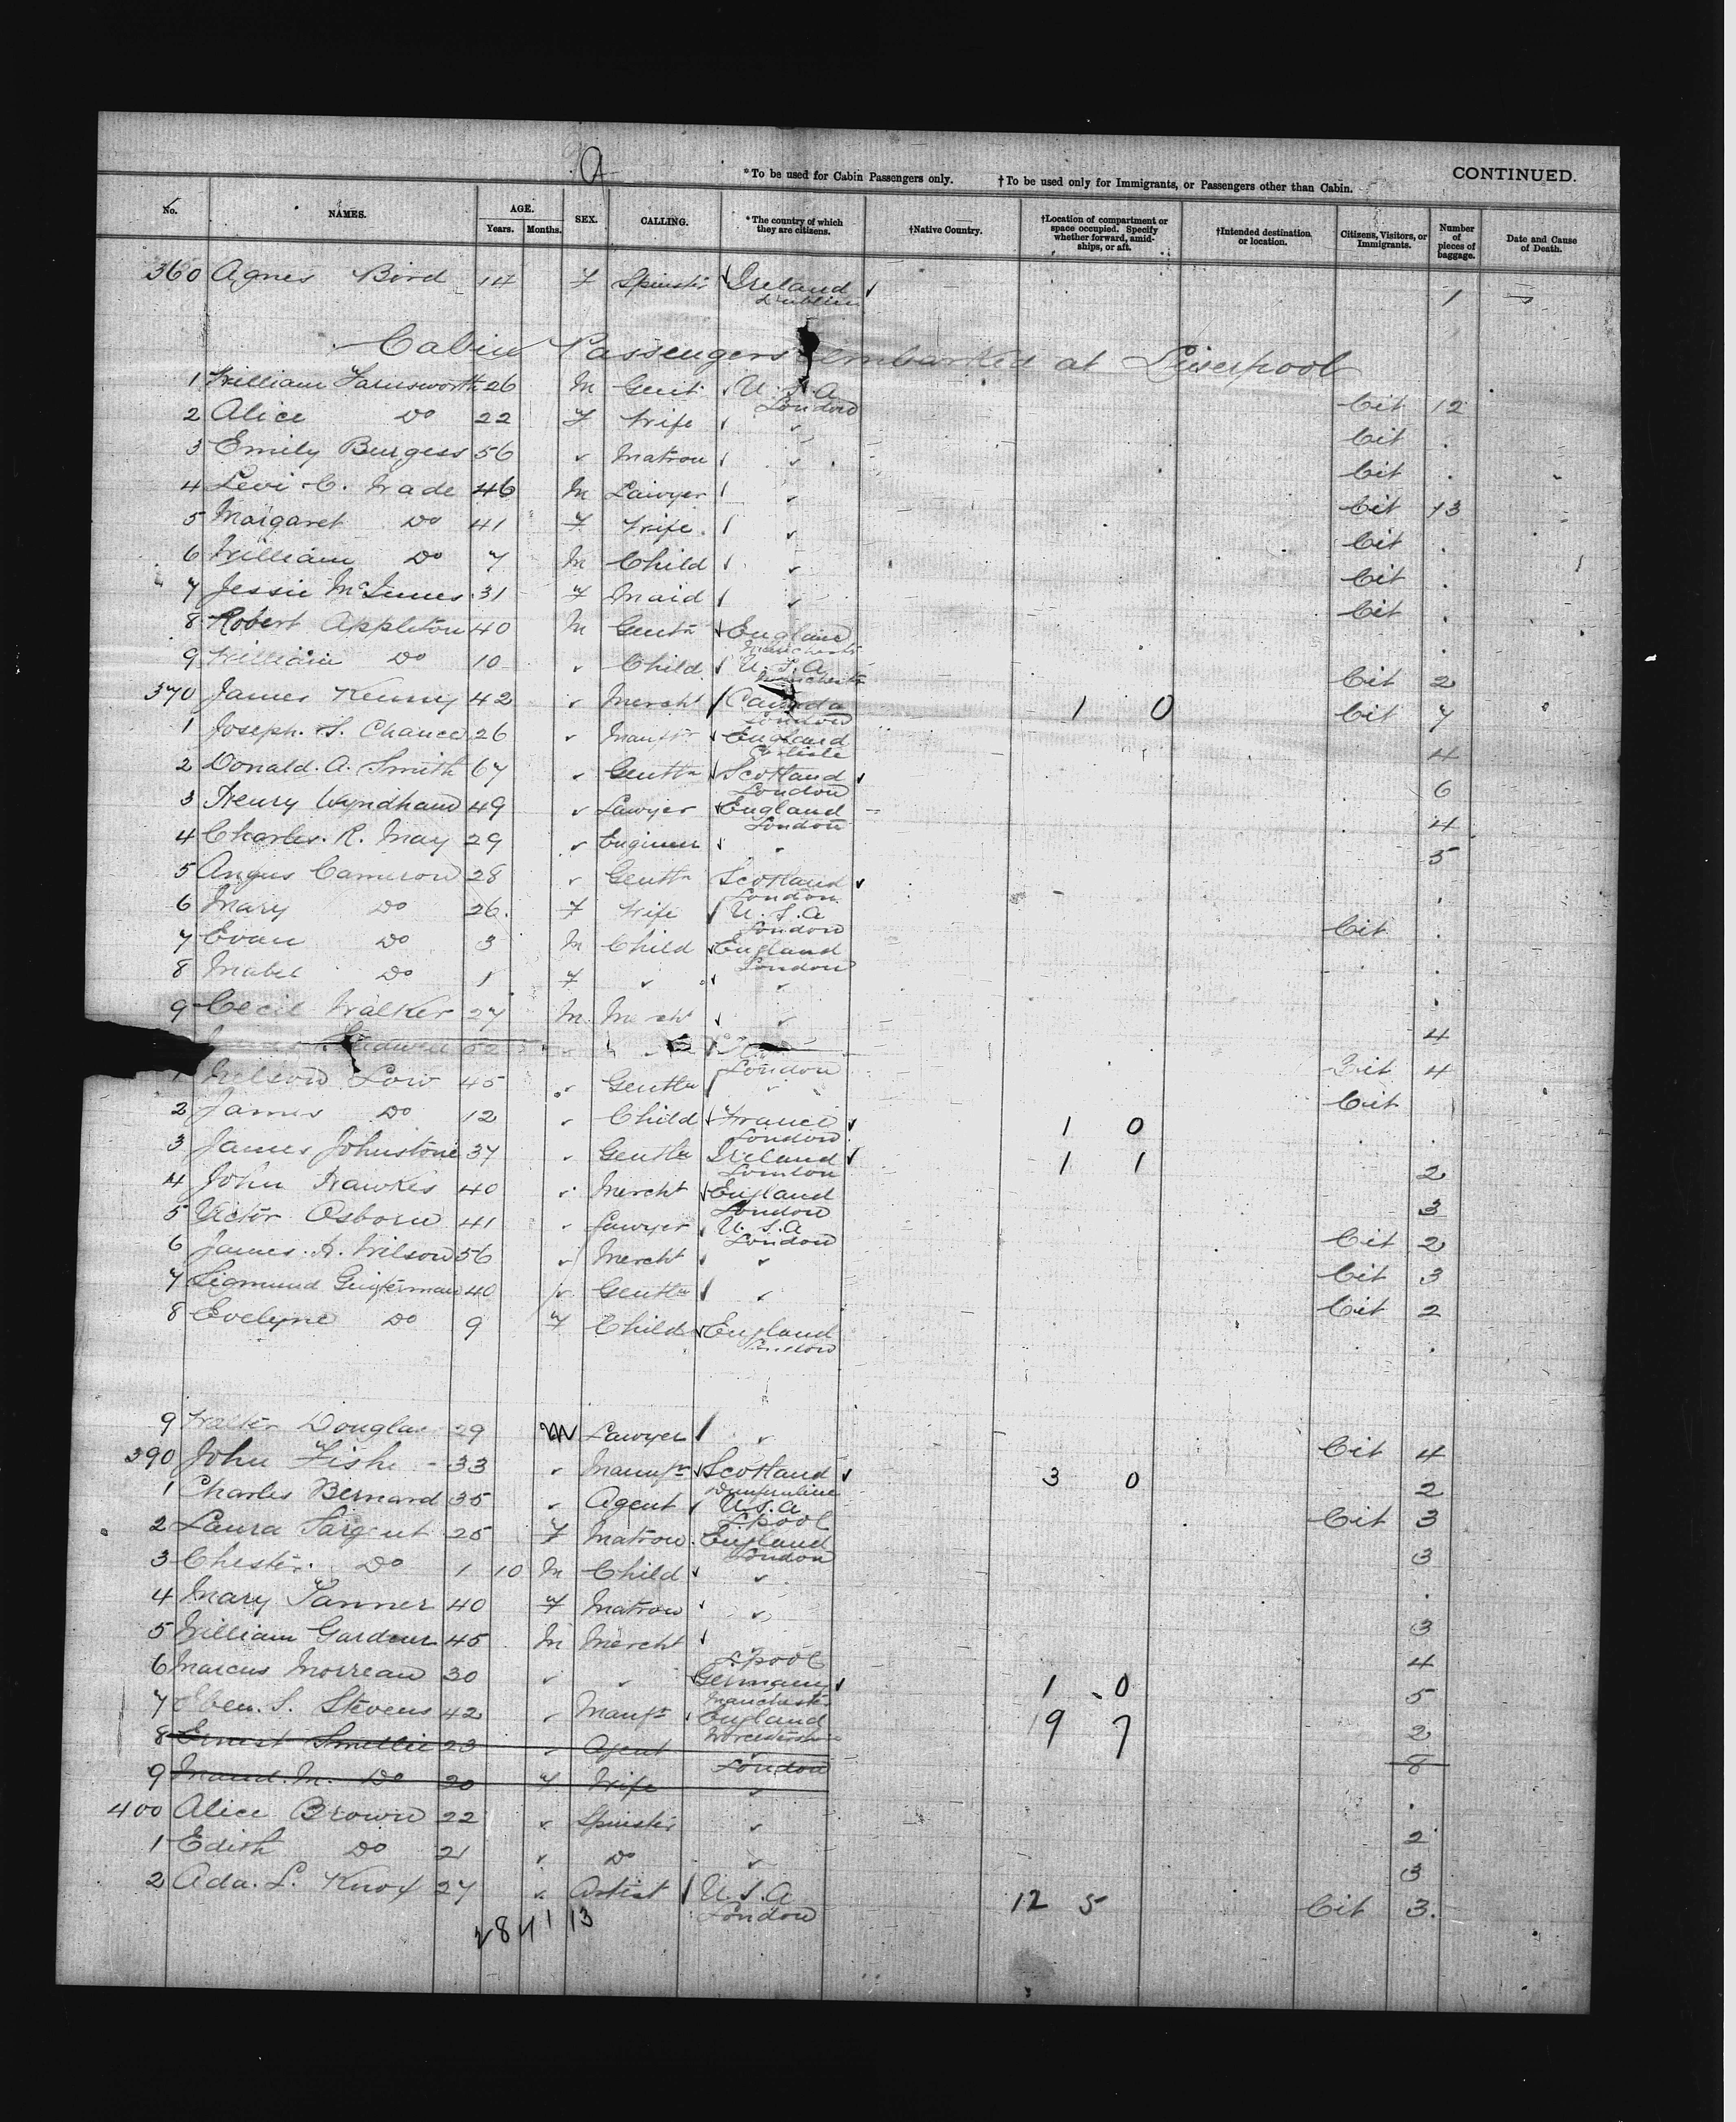 a
*To be used for Cabin Passengers only. †To be used only for Immigrants, or Passengers other than Cabin. CONTINUED.
No. NAMES. AGE. Years. Months. SEX. CALLING. *The country of which they are citizens. †Native Country. †Location of compartment or space occupied. Specify whether forward, amid-ships, or aft. †Intended destination or location. Citizens, Visitors, or Immigrants. Number of pieces of baggage. Date and Cause of Death.
360 Agnes Bird 14 F Spinstr Ireland Dublin 1
Cabin Passengers embarked at Liverpool
1 William Farnsworth 26 M Gent U.S.A London Cit 12
2 Alice Do 22 F Wife Cit
3 Emily Burgess 56 Matron Cit
4 Levi C. Wade 46 M Lawyer Cit 13
5 Margaret Do 41 F Wife Cit
6 William Do 7 M Child Cit
7 Jessie McInnes 31 F Maid Cit
8 Robert Appleton 40 M Gentn England Manchester
9 William Do 10 Child U.S.A Manchester Cit 2
370 James Kenny 42 Mercht Canada London 1 0 Cit 7
1 Joseph. S. Chance 26 Manftr England Carlisle 4
2 Donald. A. Smith 67 Gentln Scotland London 6
3 Henry Wyndham 49 Lawyer England London 4
4 Charles. R. May 29 Engineer 5
5 Angus Cameron 28 Gentln Scotland London
6 Mary Do 26 F Wife U.S.A London Cit
7 Evan Do 3 M Child England London
8 Mabel Do 1 F
9 Cecil Walker 27 M Mercht 4
London Cit 4
Low 45 Gentln Cit
2 James Do 12 Child France London 1 0
3 James Johnstone 37 Gentln Ireland London 1 1 2
4 John Hawkes 40 Mercht England London 3
5 Victor Osborn 41 Lawyer U.S.A London Cit 2
6 James. H. Wilson 56 Mercht Cit 3
7 Sigmund 40 Gentln Cit 2
8 Evelyne Do 9 F Child England London
9 Walter Douglas 29 M Lawyer Cit 4
390 John 33 Manufr Scotland Dumfermline 3 0 2
1 Charles Bernard 35 Agent U.S.A L'pool Cit 3
2 Laura Sargent 25 F Matron England London 3
3 Chester Do 1 10 M Child
4 Mary Tanner 40 F Matron 3
5 William Gardner 45 M Mercht L'pool 4
6 Marcus Morreau 30 Germany Manchester 1 0 5
7 Eben. S. Stevens 42 Manfr England Worcestershire 19 7 2
8 Ernest Smellie 23 Agent London 8
9 Maud. M. Do 20 F Wife
400 Alice Brown 22 Spinster 2
1 Edith Do 21 Do 3
2 Ada. L. Knox 27 Artist U.S.A London 12 5 Cit 3.